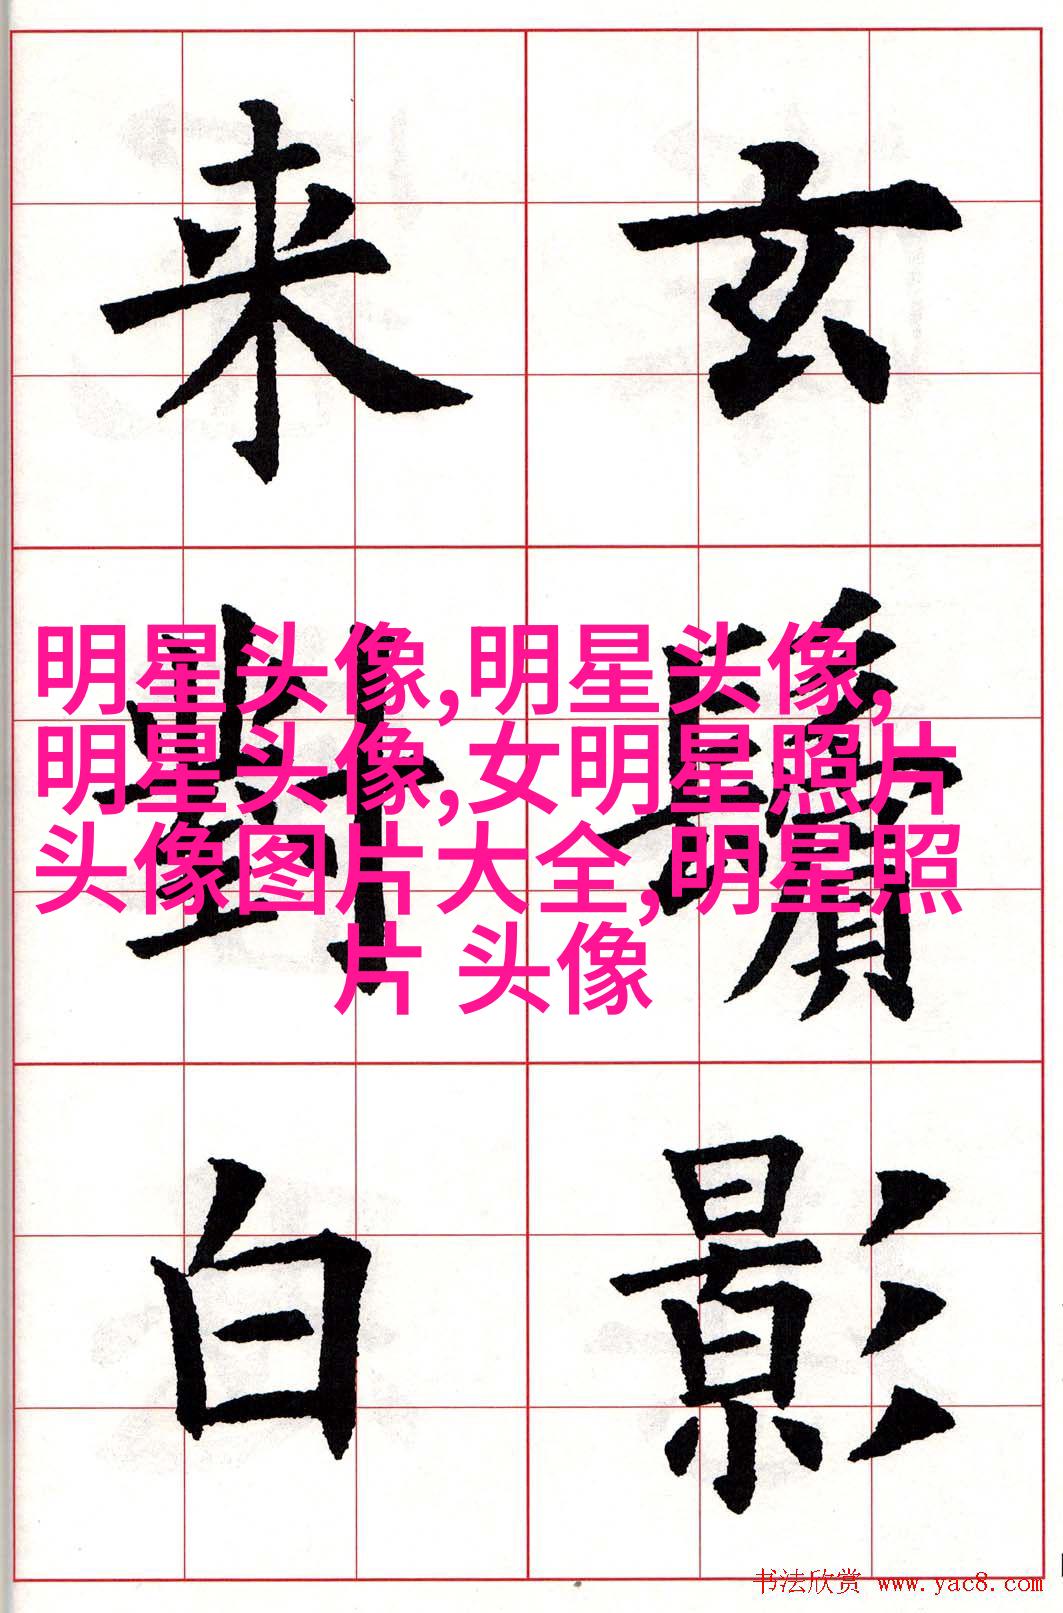 玄鬢影
来對白
明星头像,明星头像,
明星头像,女明星照片
头像图片大全,明星照
片 头像
书法欣赏 www.yac8.com